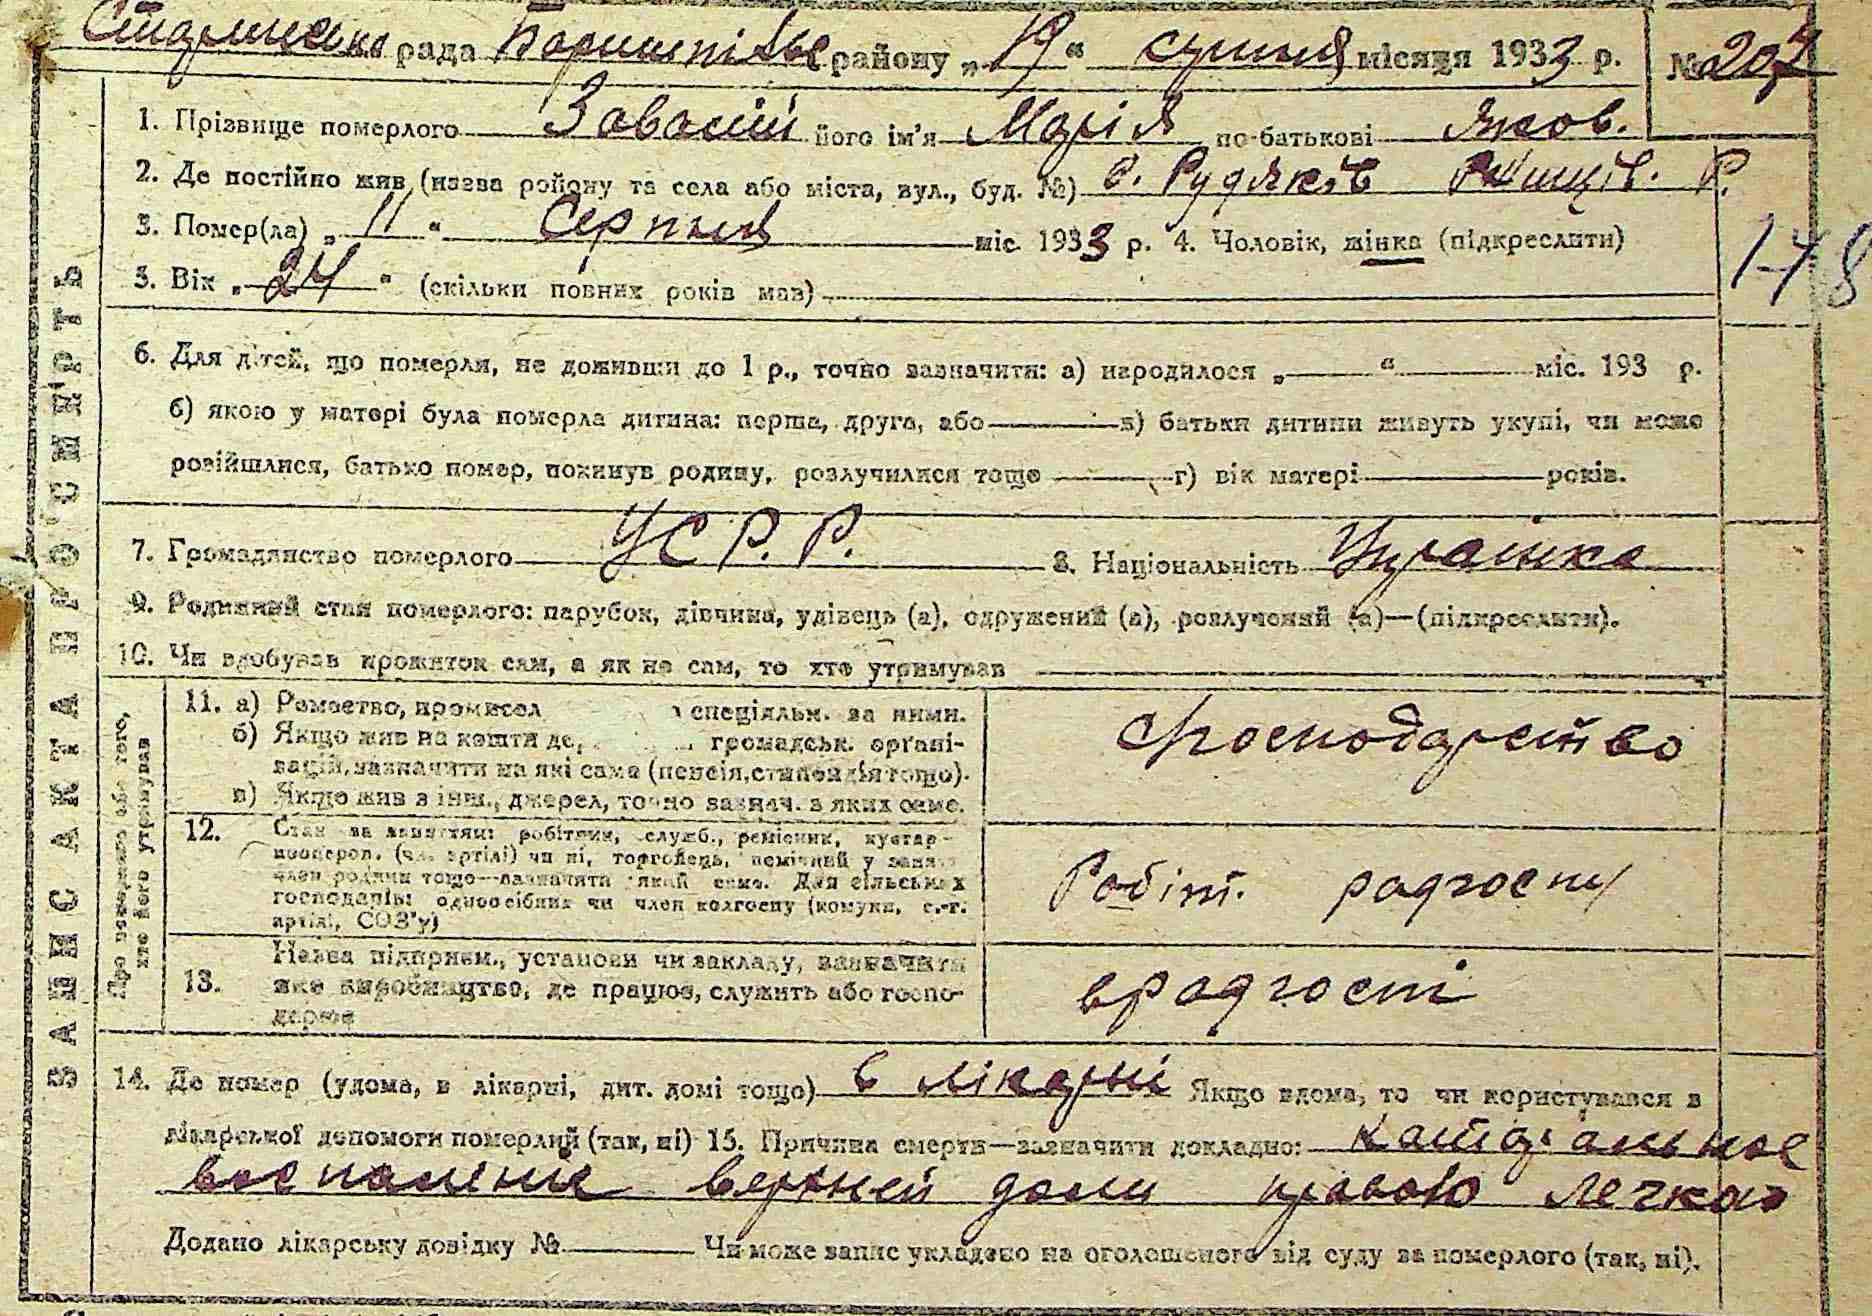 рада Бориспільс району „19“ серпня місяця 1933 р. № 207
ЗАПИС АКТА ПРО СМЕРТЬ
1. Прізвище померлого його ім'я Марія по-батькові Яков.
2. Де постійно жив (назва району та села або міста, вул., буд. №) с. Рудяків Р.
3. Помер(ла) „11“ Серпня міс. 1933 р. 4. Чоловік, жінка (підкреслити)
148
5. Вік „24“ (скільки повних років мав)
6. Для дітей, що померли, не доживши до 1 р., точно зазначити: а) народилося „ “ міс. 193 р.
б) якою у матері була померла дитина: перша, друга, або в) батьки дитини живуть укупі, чи може
розійшлися, батько помер, покинув родину, розлучилися тощо г) вік матері років.
7. Громадянство померлого УСР.Р. 8. Національність Українка
9. Родинний стан померлого: парубок, дівчина, удівець (а), одружений (а), розлучений (а)—(підкреслити).
10. Чи здобував прожиток сам, а як не сам, то хто утримував
Про померлого або того, хто його утримував
11. а) Ремество, промисел спеціяльн. за ними.
б) Якщо жив на кошти де громадськ. органі-
зацій, зазначити на які саме (пенсія, стипендія тощо).
в) Якщо жив з інш., джерел, точно зазнач. з яких саме.
господарство
12. Стан за заняттям: робітник, служб., ремісник, кустар-
кооперов. (чл. артілі) чи ні, торговець,
член родини тощо—зазначити який саме. Для сільських
господарів: одноосібник чи член колгоспу (комуни, с.-г.
артілі, СОЗ'у)
Робіт. радгоспу
13. Назва підприєм., установи чи закладу, зазначити
яке виробництво, де працює, служить або госпо-
дарює
в радгоспі
14. Де помер (удома, в лікарні, дит. домі тощо) в лікарні Якщо вдома, то чи користувався в
лікарської допомоги померлий (так, ні) 15. Причина смерти—зазначити докладно: катаральное
воспаление верхней доли правого легкого
Додано лікарську довідку № Чи може запис укладено на оголошеного від суду за померлого (так, ні).